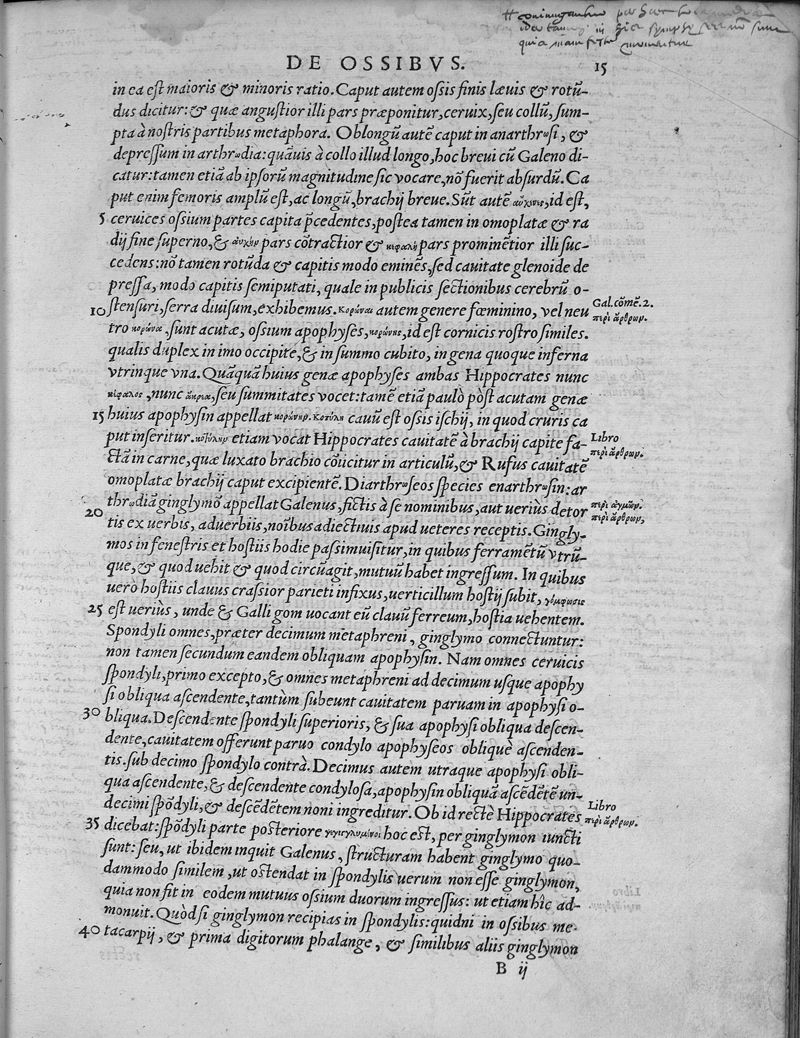 DE OSSIBVS.
15
in ea est maioris & minoris ratio. Caput autem oſsis finis læuis & rotū-
dus dicitur: & quæ anguſtior illi pars præponitur, ceruix, ſeu collũ, ſum-
pta à noſtris partibus metaphora. Oblongũ autẽ caput in anarthrωſi, &
depreſſum in arthrωdia: quãuis à collo illud longo, hoc breui cũ Galeno di-
catur: tamen etiã ab ipſorũ magnitudine ſic vocare, nõ fuerit abſurdũ. Ca
put enim femoris amplũ eſt, ac longũ, brachij breue. Sũt autẽ αὐχένες, id eſt,
5 ceruices oſsium partes capita p̃cedentes, poſtea tamen in omoplatæ & ra
dij fine ſuperno, & αυχὴν pars cõtractior & κεφαλὴ pars prominẽtior illi ſuc-
cedens: nõ tamen rotũda & capitis modo eminẽs, ſed cauitate glenoide de
preſſa, modo capitis ſemiputati, quale in publicis ſectionibus cerebrũ o-
10 ſtenſuri, ſerra diuiſum, exhibemus. Κορώναι autem genere fœminino, vel neu
Gal. cõmẽ. 2.
περὶ ἄρθρωμ.
tro κορώνεα, ſunt acutæ, oſsium apophyſes, κορώνης, id eſt cornicis roſtro ſimiles.
qualis duplex in imo occipite, & in ſummo cubito, in gena quoque inferna
vtrinque vna. Quãquã huius genæ apophyſes ambas Hippocrates nunc
nunc ſeu ſummitates vocet: tamẽ etiã paulò pòſt acutam genæ
15 huius apophyſin appellat κορώνην. Κοτύλη cauũ eſt oſsis iſchij, in quod cruris ca
put inſeritur. κοτύλην etiam vocat Hippocrates cauitatẽ à brachij capite fa-
Libro
περὶ ἄρθρωμ.
ctã in carne, quæ luxato brachio cõijcitur in articulũ, & Rufus cauitatẽ
omoplatæ brachij caput excipientẽ. Diarthrωſeos ſpecies enarthrωſin: ar
thrωdiã ginglymõ appellat Galenus, fictis à ſe nominibus, aut ueriùs detor
περὶ ἀγμῶμ.
20 tis ex uerbis, aduerbiis, noĩbus adiectiuis apud ueteres receptis. Gingly-
περὶ ἄρθρωμ,
mos in feneſtris et hoſtiis hodie paſsimuiſitur, in quibus ferramẽtũ vtrũ-
que, & quod uehit & quod circũagit, mutuũ habet ingreſſum. In quibus
uerò hoſtiis clauus craſsior parieti infixus, uerticillum hoſtij ſubit, γόμφωσις
25 eſt ueriùs, unde & Galli gom uocant eũ clauũ ferreum, hoſtia uehentem.
Spondyli omnes, præter decimum metaphreni, ginglymo connectuntur:
non tamen ſecundum eandem obliquam apophyſin. Nam omnes ceruicis
ſpondyli, primo excepto, & omnes metaphreni ad decimum uſque apophy
ſi obliqua aſcendente, tantùm ſubeunt cauitatem paruam in apophyſi o-
30 bliqua. Deſcendente ſpondyli ſuperioris, & ſua apophyſi obliqua deſcen-
dente, cauitatem offerunt paruo condylo apophyſeos obliquè aſcenden-
tis. ſub decimo ſpondylo contrà. Decimus autem utraque apophyſi obli-
qua aſcendente, & deſcendente condyloſa, apophyſin obliquã aſcẽdẽtẽ un-
decimi ſpõdyli, & deſcẽdẽtem noni ingreditur. Ob id rectè Hippocrates
Libro
περὶ ἄρθρωμ.
35 dicebat: ſpõdyli parte poſteriore γεγιγγλυμῶνται hoc eſt, per ginglymon iuncti
ſunt: ſeu, ut ibidem inquit Galenus, ſtructuram habent ginglymo quo-
dammodo ſimilem, ut oſtendat in ſpondylis uerum non eſſe ginglymon,
quia non fit in eodem mutuus oſsium duorum ingreſſus: ut etiam hîc ad-
monuit. Quòdſi ginglymon recipias in ſpondylis: quidni in oſsibus me-
40 tacarpij, & prima digitorum phalange, & ſimilibus aliis ginglymon
B ij